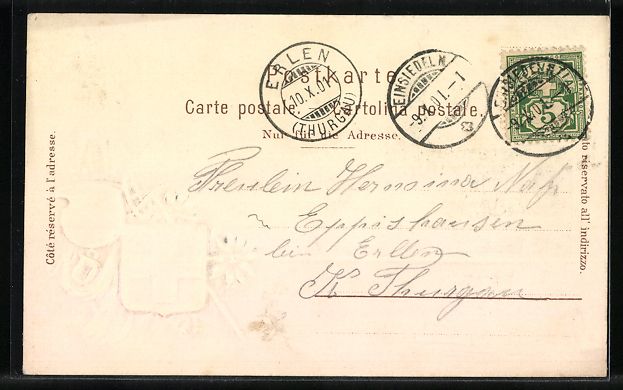 Postkarte.
Carte postale. Cartolina postale.
Nur für die Adresse.
Côté réservé à l'adresse.
lato riservato all' indirizzo.
ERLEN
10.X.01
(THURGAU)
EINSIEDELN
-9.X.01.-1
EINSIEDELN
5
Fräulein Hermina Näf
Eppishausen
bei Erlen
Kt Thurgau